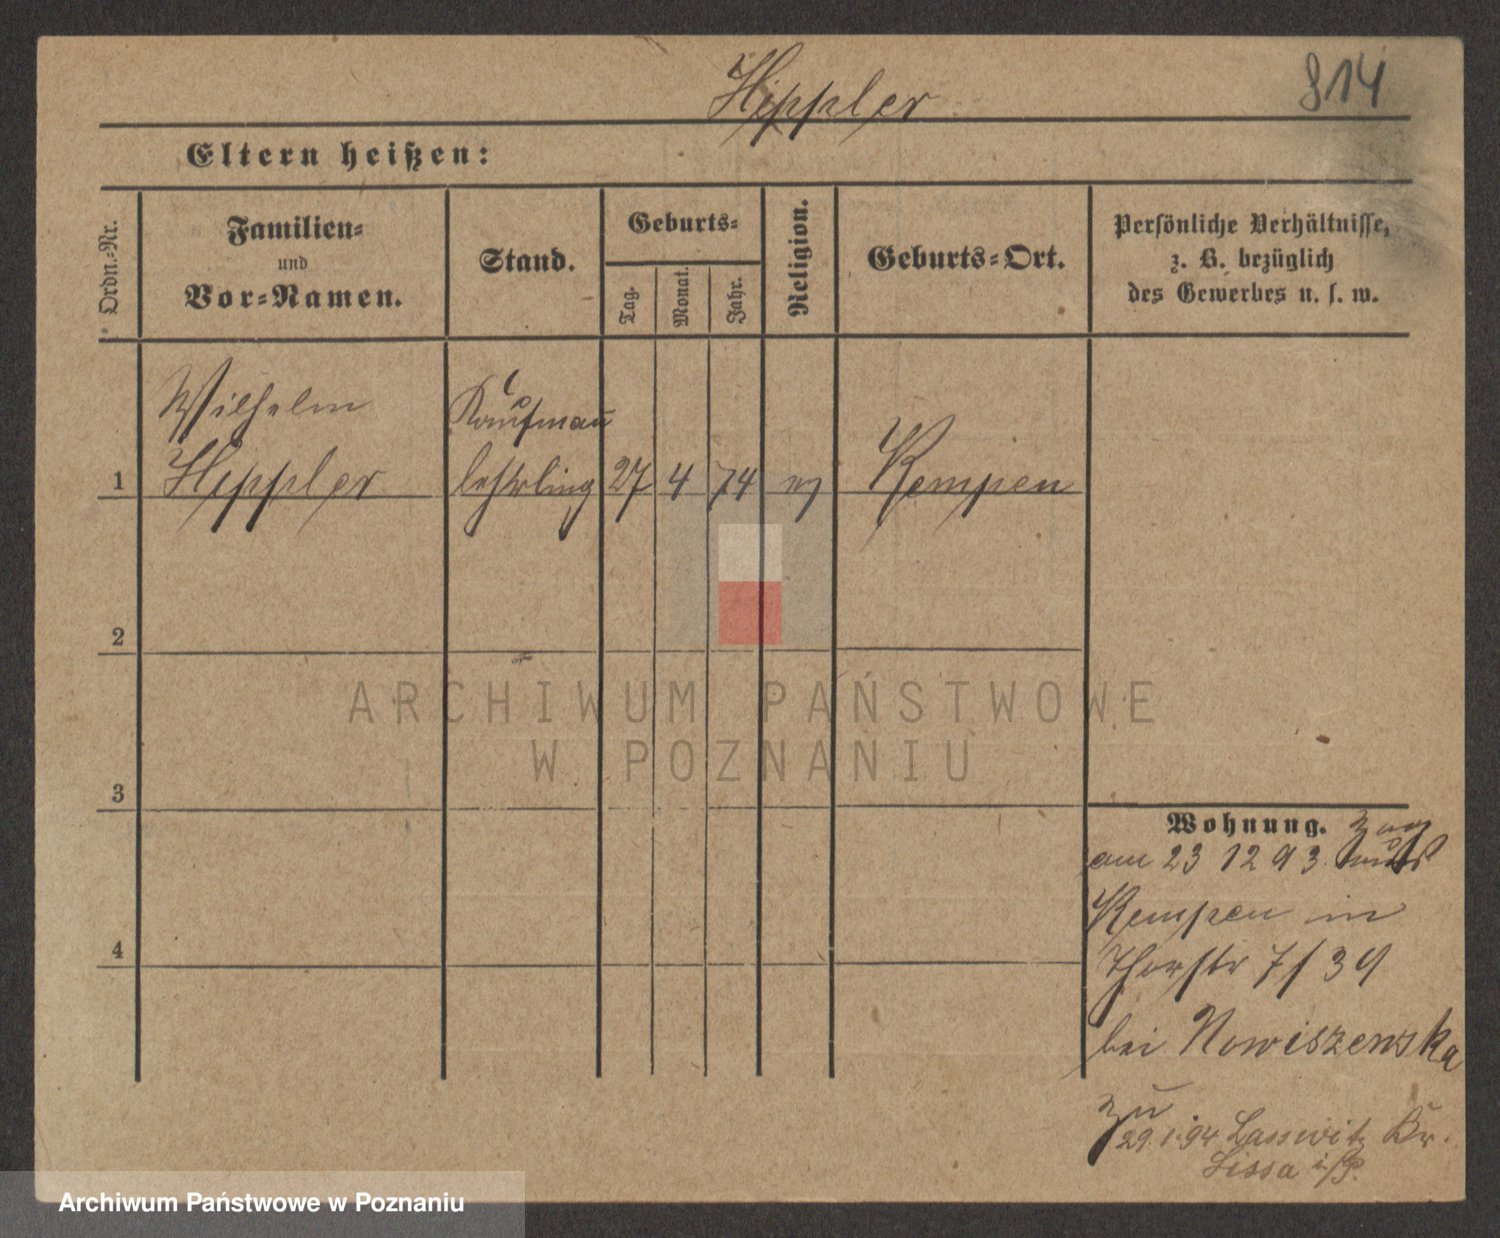 Hippler
814
Eltern heißen:
Ordn.-Nr.
Familien-
und
Vor-Namen.
Stand.
Geburts-
Tag.
Monat.
Jahr.
Religion.
Geburts-Ort.
Persönliche Verhältnisse,
z. B. bezüglich
des Gewerbes u. s. w.
Wilhelm
Kaufmann
1 Hippler lehrling 27 4 74 ev Kempen
2
ARCHIWUM PAŃSTWOWE
W POZNANIU
3
4
Wohnung. zog
am 23 12 93
Kempen in
Thorstr 7/39
bei Nowiszewska
zu
29.1.94 Lasswitz Kr.
Lissa i/P.
Archiwum Państwowe w Poznaniu